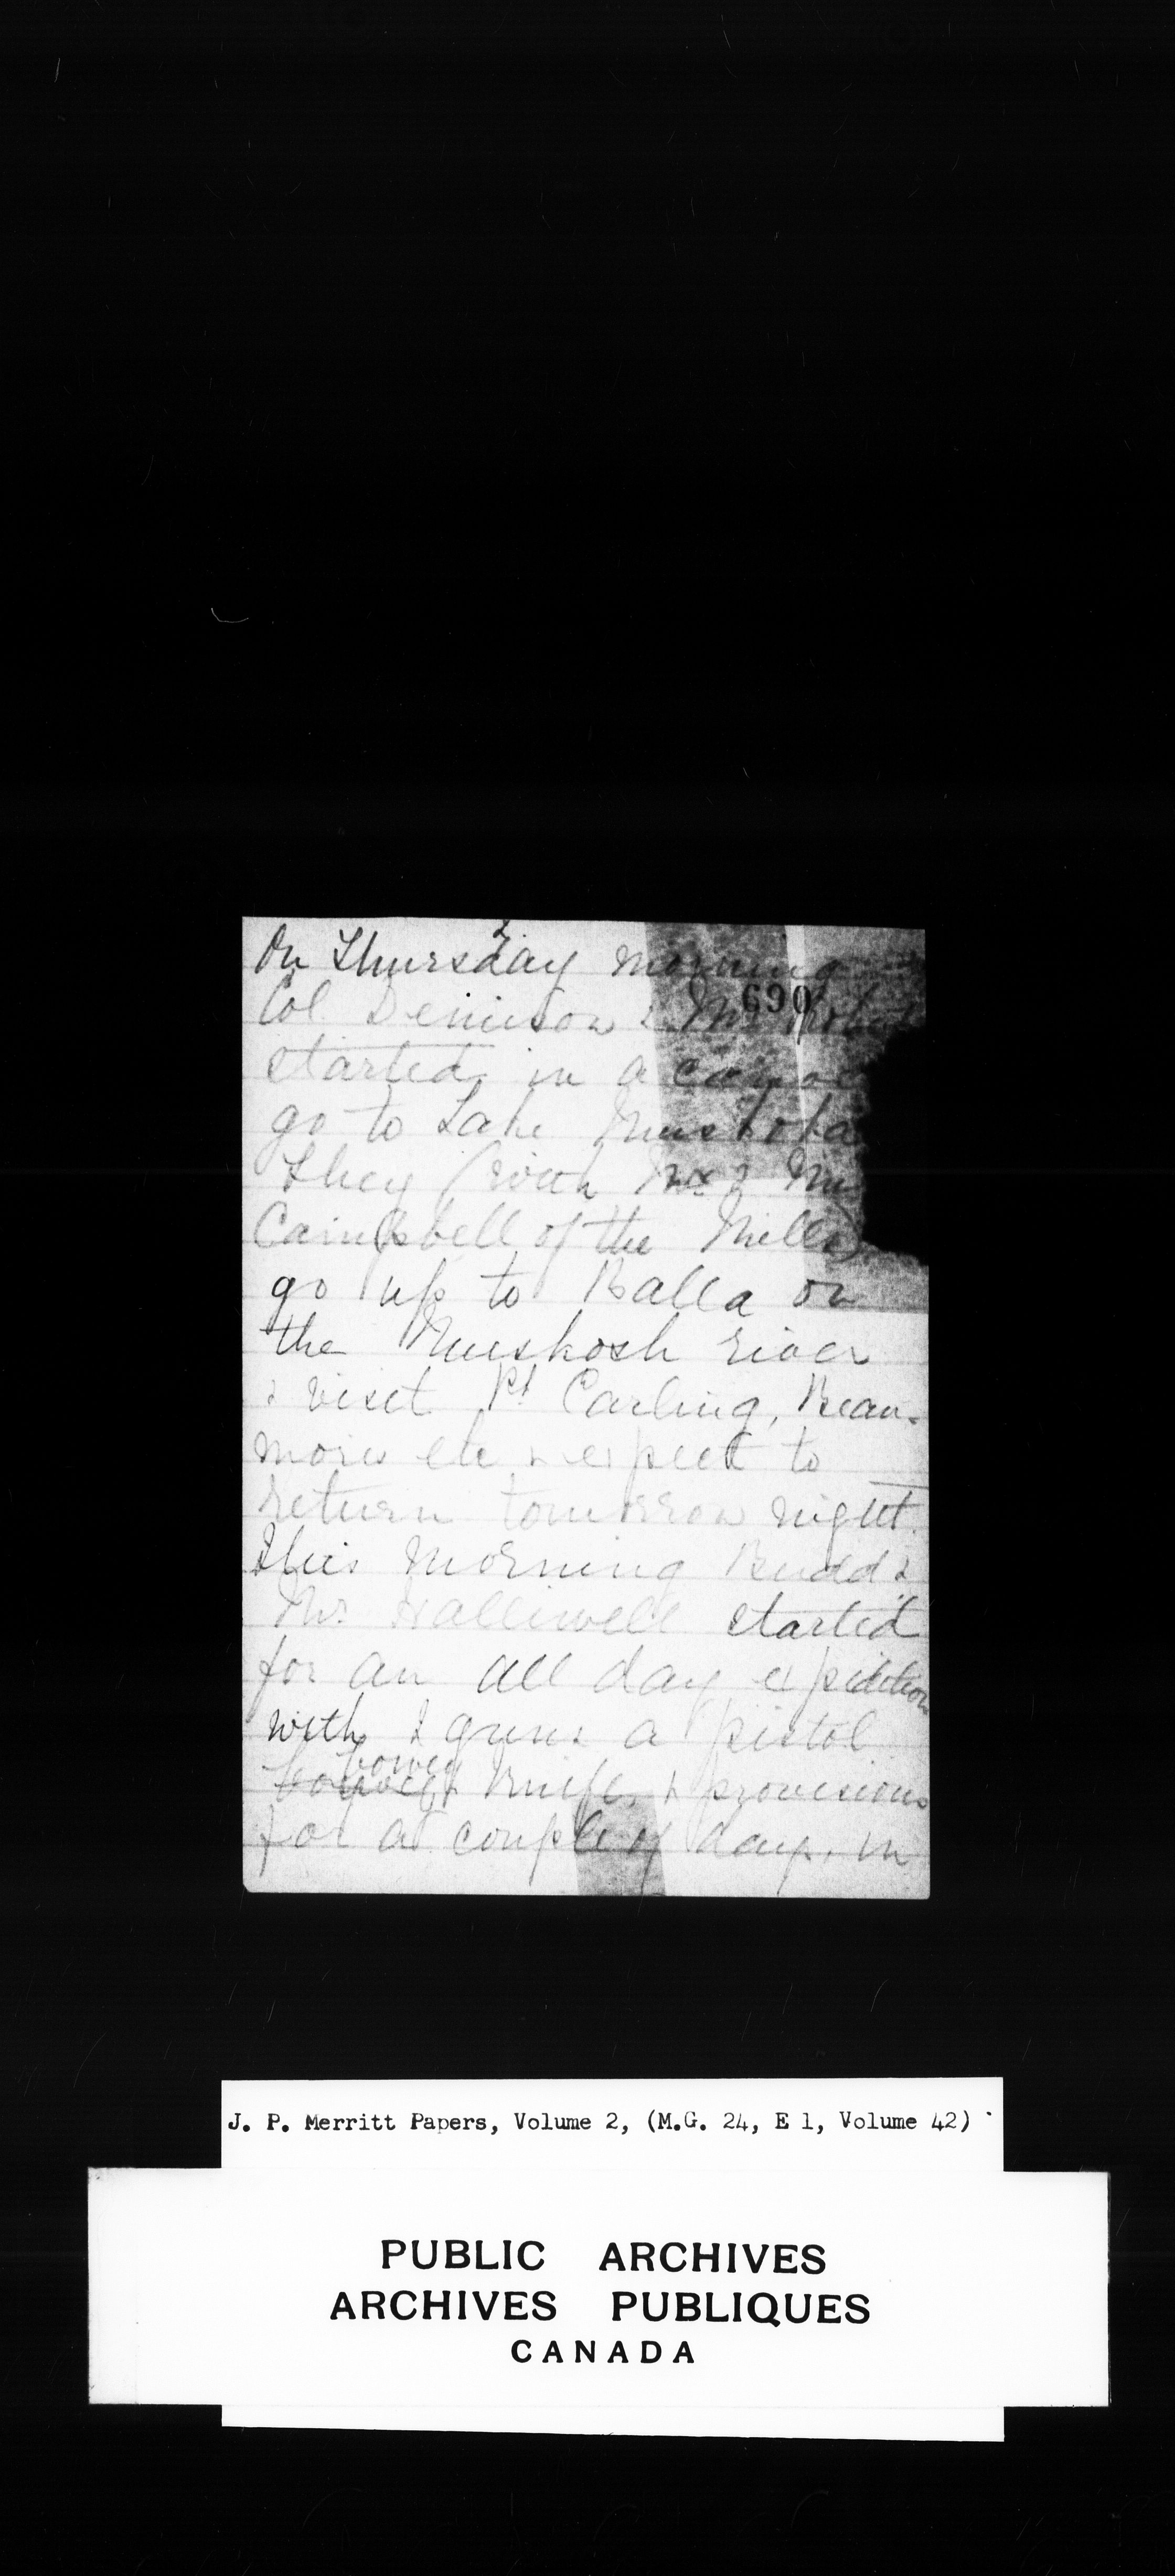 On Thursday morning
690
Col. Denison & Mr
started in a canoe
go to Lake Muskoka
They (with Mr & Mrs
Campbell of the Mills)
go up to Balla on
the Muskosh river
& visit Pt Carling, Beau-
moris etc & expect to
return tomorrow night.
This morning Budd &
Mr Halliwell started
for an all day expidition
with 2 guns a pistol
bowey
knife, & provisions
for a couple of days. in
J. P. Merritt Papers, Volume 2, (M.G. 24, E 1, Volume 42)
PUBLIC ARCHIVES
ARCHIVES PUBLIQUES
CANADA